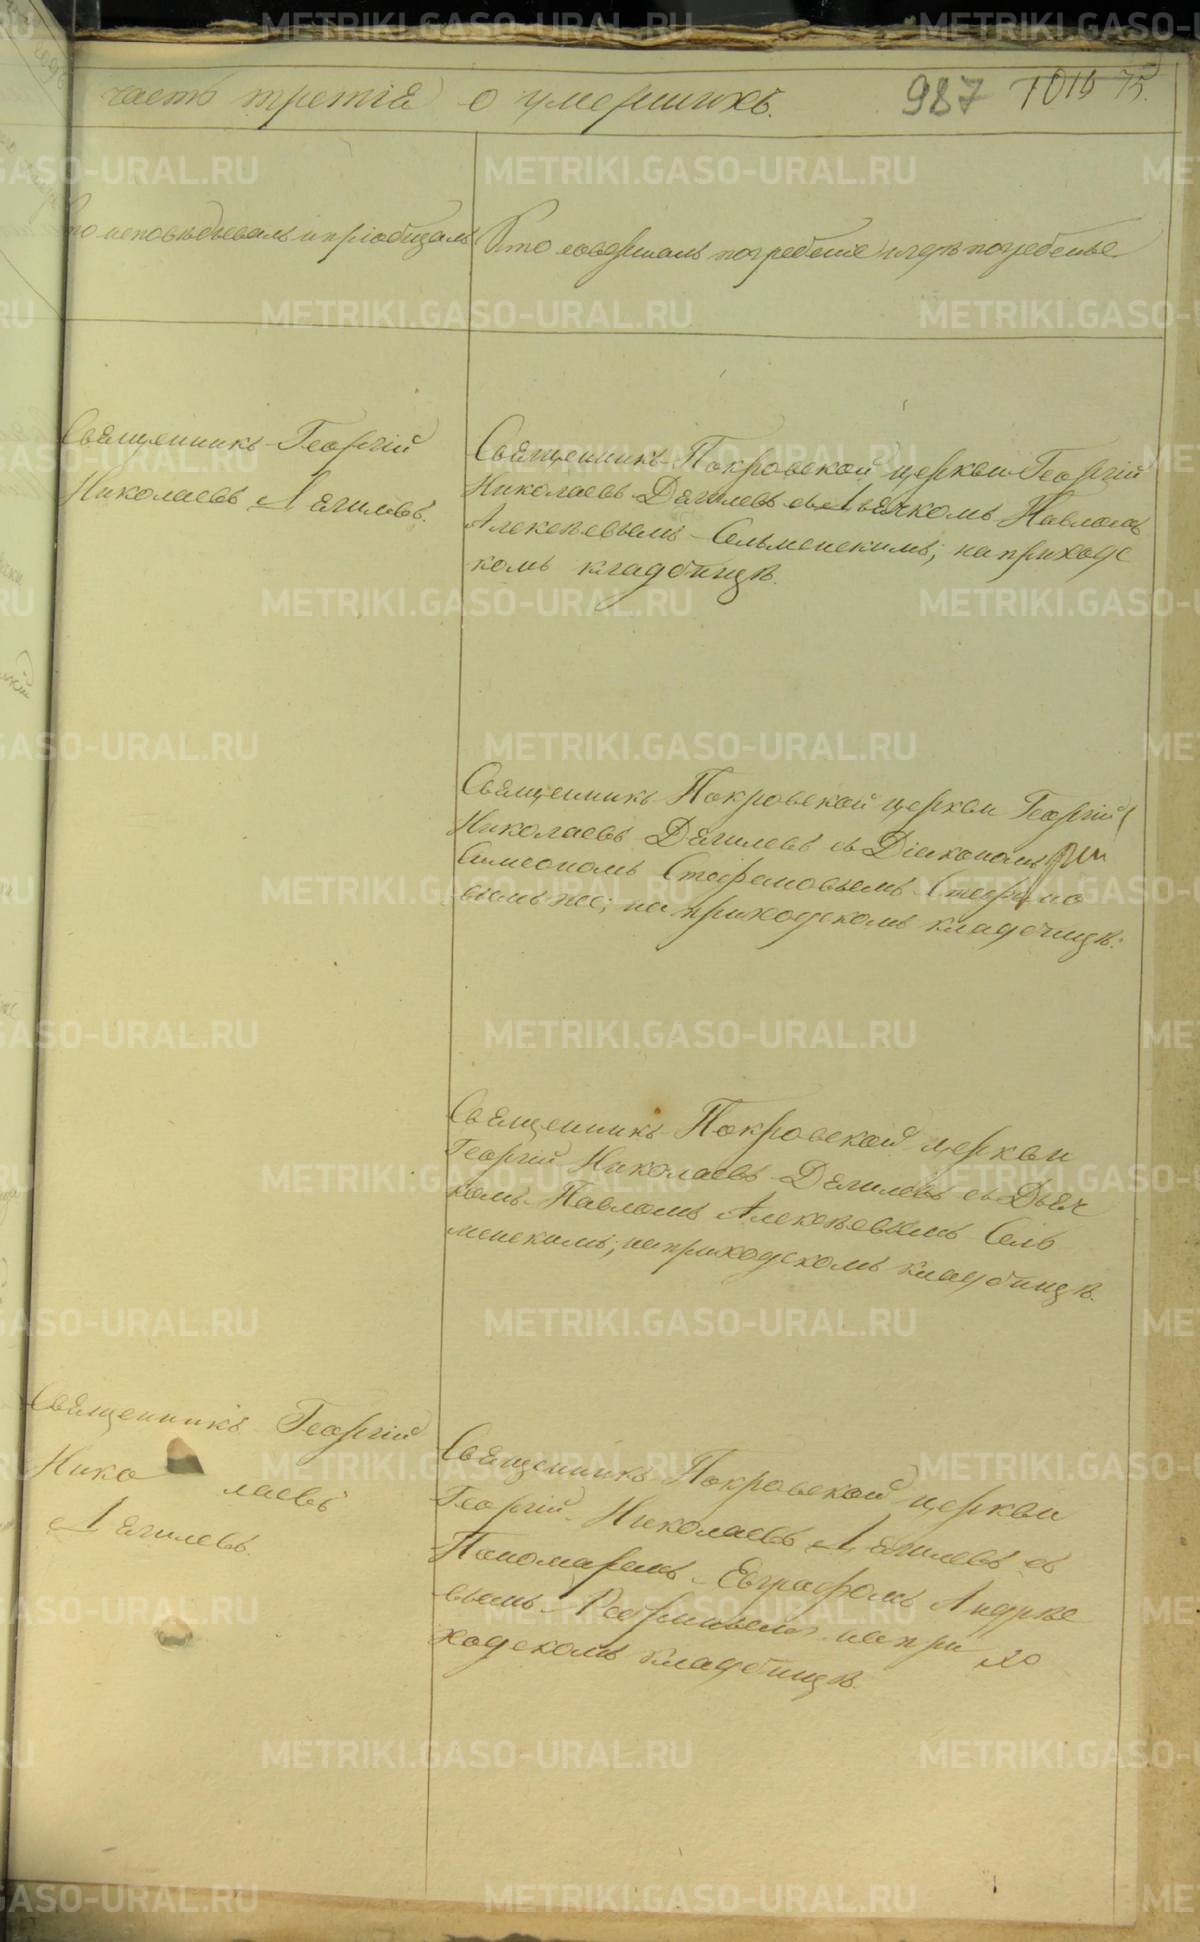 часть третія о умершихъ.
987 1016 75.
Кто исповѣдывалъ и пріобщалъ
Кто совершалъ погребеніе и гдѣ погребены.
Священникъ Георгій
Николаевъ Дягилевъ.
Священникъ Покровской церкви Георгій
Николаевъ Дягилевъ съ Дьячкомъ Павломъ
Алексѣевымъ Сельменскимъ; на приходс
комъ кладбищѣ.
Священникъ Покровской церкви Георгій
Николаевъ Дягилевъ съ Діакономъ
Симеономъ Стефановымъ Стефано
вымъ же; на приходскомъ кладбищѣ.
Священникъ Покровской церкви
Георгій Николаевъ Дягилевъ съ Дьяч
комъ Павломъ Алексѣевымъ Сель
менскимъ; на приходскомъ кладбищѣ.
Священникъ Георгій
Нико лаевъ
Дягилевъ.
Священникъ Покровской церкви
Георгій Николаевъ Дягилевъ съ
Пономаремъ Евграфомъ Андрѣе
вымъ на при хо
ходскомъ кладбищѣ.
METRIKI.GASO-URAL.RU